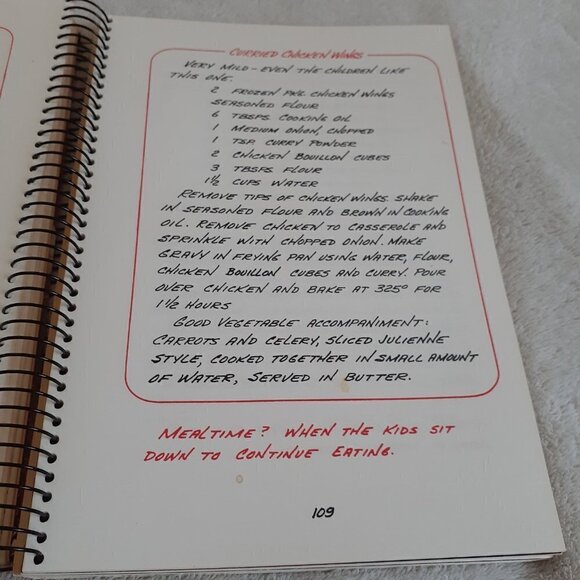 Curried Chicken Wings
Very mild - even the children like
this one.
2 frozen pkg. chicken wings
seasoned flour
6 tbsps. cooking oil
1 medium onion, chopped
1 tsp. curry powder
2 chicken bouillon cubes
3 tbsps. flour
1½ cups water
Remove tips of chicken wings. Shake
in seasoned flour and brown in cooking
oil. Remove chicken to casserole and
sprinkle with chopped onion. Make
gravy in frying pan using water, flour,
chicken bouillon cubes and curry. Pour
over chicken and bake at 325° for
1½ hours
Good vegetable accompaniment:
carrots and celery, sliced julienne
style, cooked together in small amount
of water, served in butter.
Mealtime? When the kids sit
down to continue eating.
109